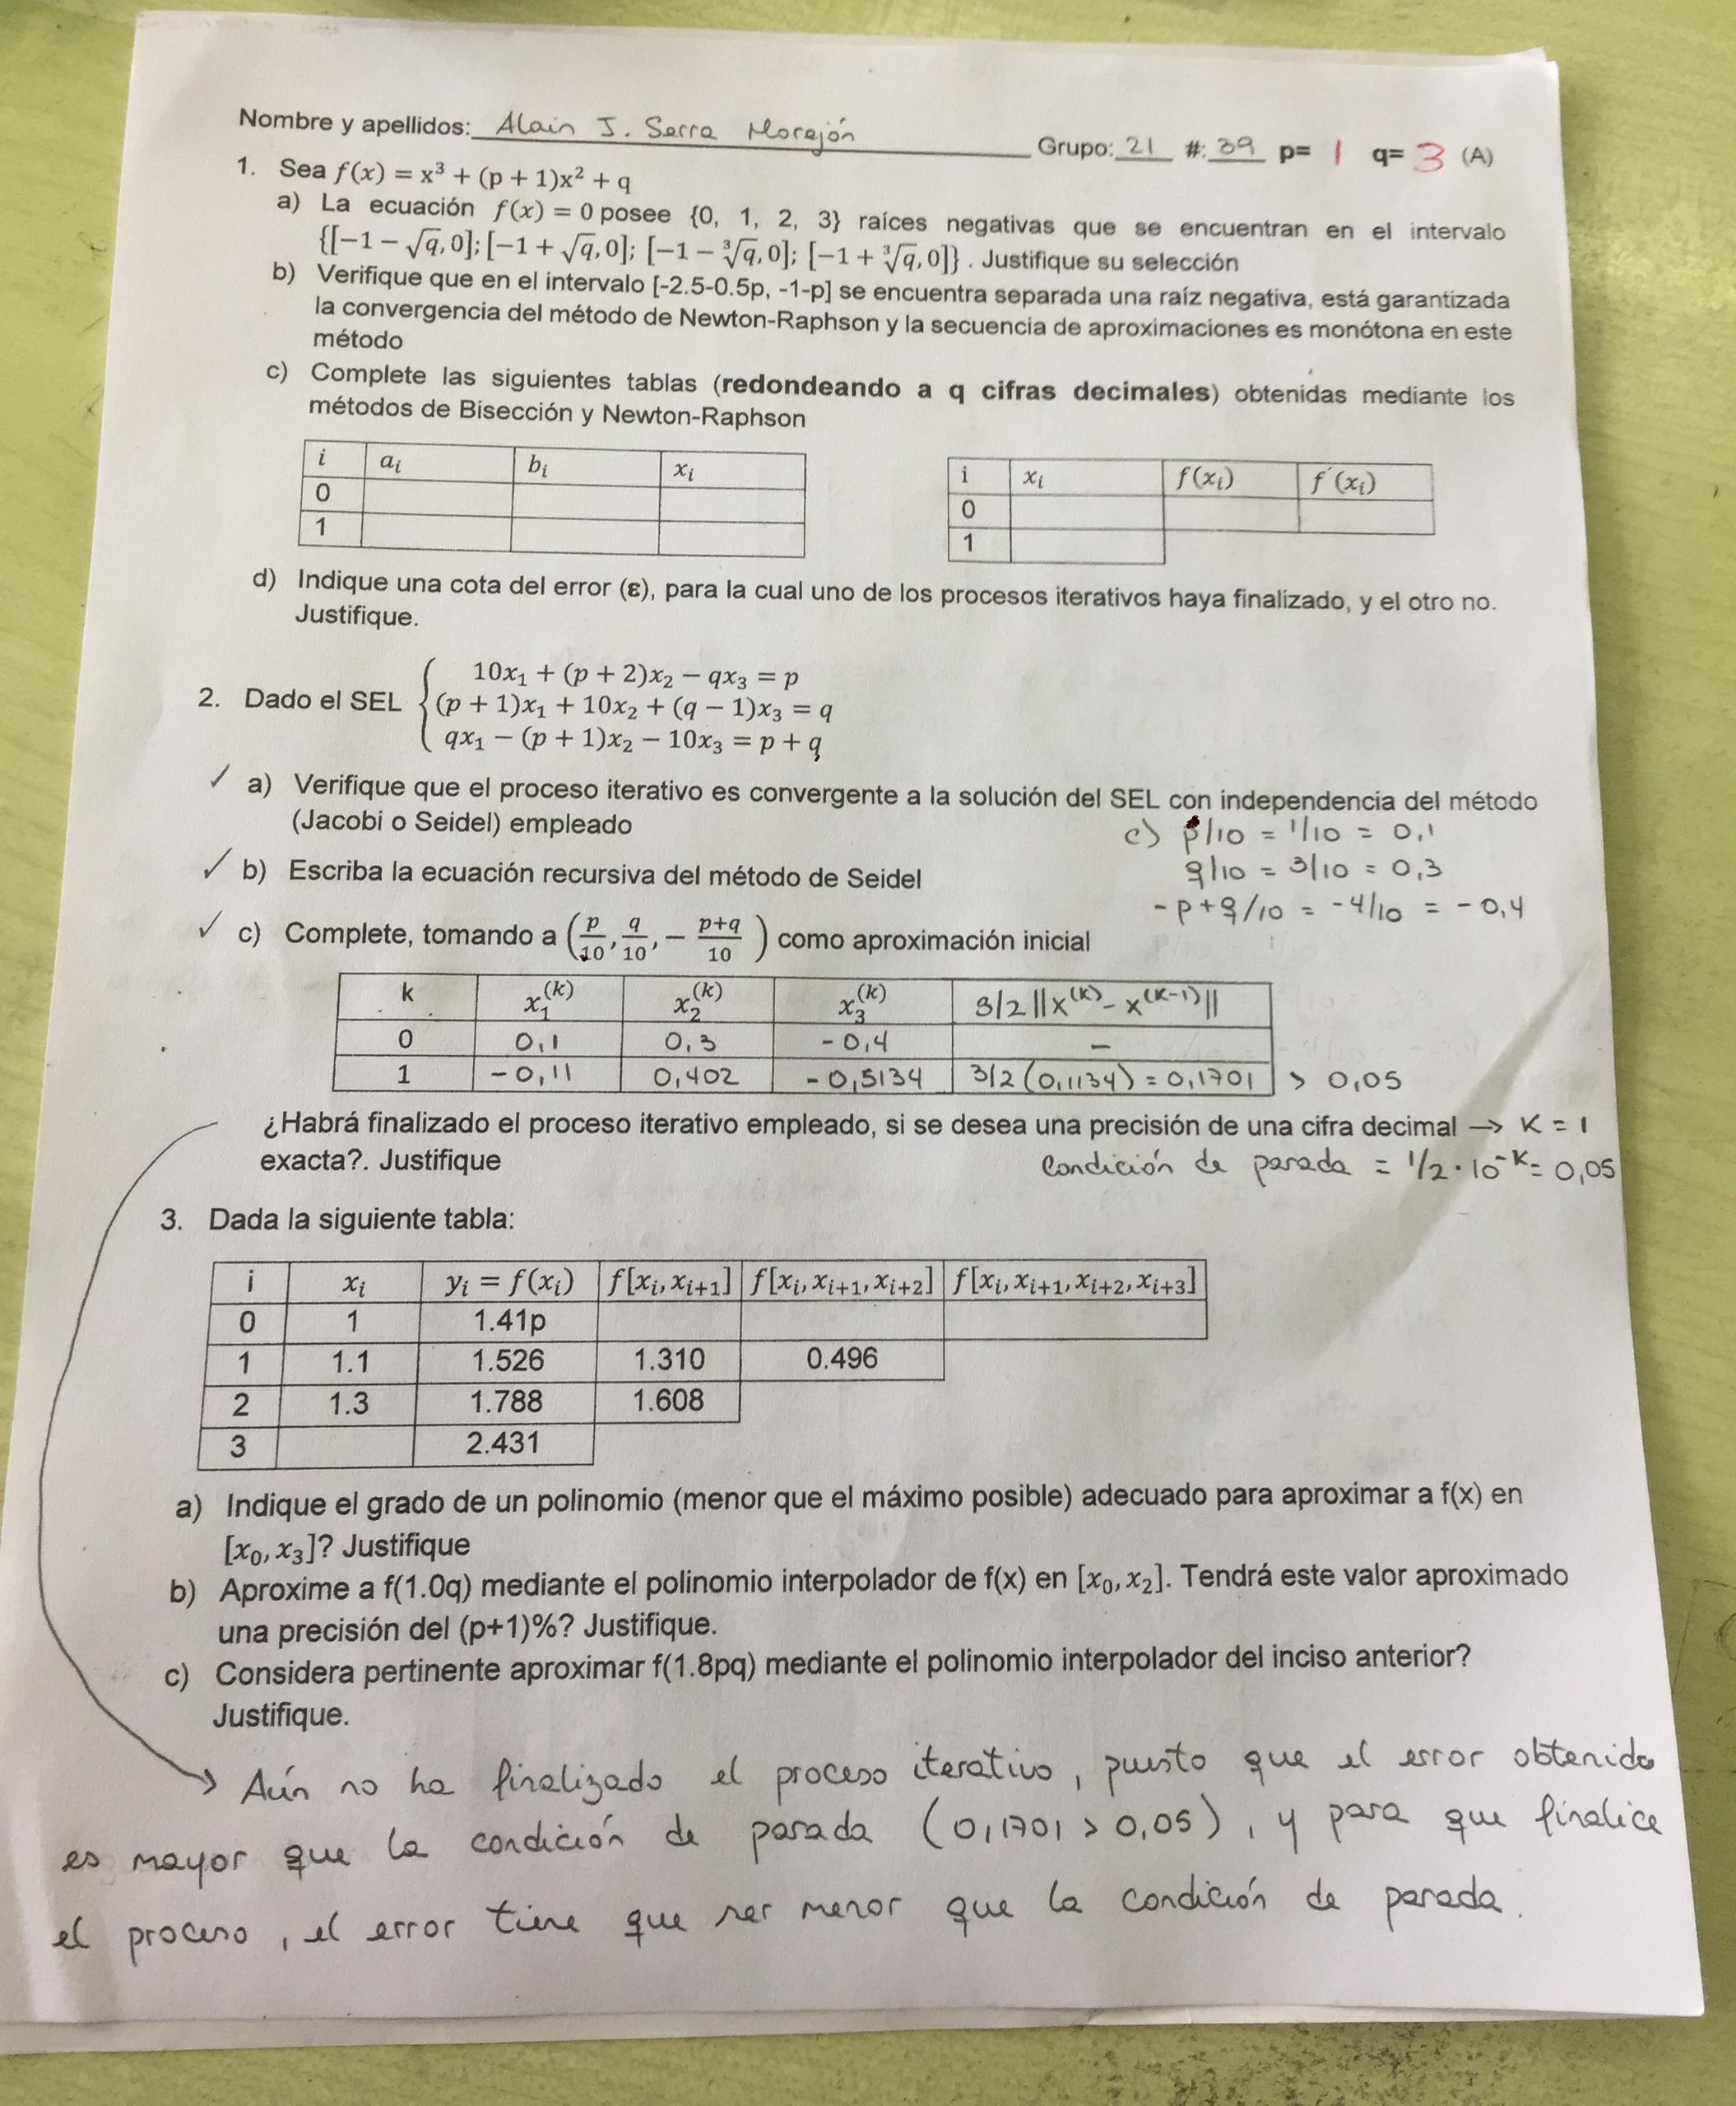 Nombre y apellidos: Alain J. Serra Morejón Grupo: 21 #: 39 p= 1 q= 3 (A)
1. Sea f(x) = x³ + (p + 1)x² + q
a) La ecuación f(x) = 0 posee {0, 1, 2, 3} raíces negativas que se encuentran en el intervalo
{[−1 − √q, 0]; [−1 + √q, 0]; [−1 − ∛q, 0]; [−1 + ∛q, 0]} . Justifique su selección
b) Verifique que en el intervalo [-2.5-0.5p, -1-p] se encuentra separada una raíz negativa, está garantizada
la convergencia del método de Newton-Raphson y la secuencia de aproximaciones es monótona en este
método
c) Complete las siguientes tablas (redondeando a q cifras decimales) obtenidas mediante los
métodos de Bisección y Newton-Raphson
i aᵢ bᵢ xᵢ
0
1
i xᵢ f(xᵢ) f´(xᵢ)
0
1
d) Indique una cota del error (ε), para la cual uno de los procesos iterativos haya finalizado, y el otro no.
Justifique.
10x₁ + (p + 2)x₂ − qx₃ = p
2. Dado el SEL { (p + 1)x₁ + 10x₂ + (q − 1)x₃ = q
qx₁ − (p + 1)x₂ − 10x₃ = p + q
✓ a) Verifique que el proceso iterativo es convergente a la solución del SEL con independencia del método
(Jacobi o Seidel) empleado
c) p/10 = 1/10 = 0,1
q/10 = 3/10 = 0,3
-p+q/10 = -4/10 = -0,4
✓ b) Escriba la ecuación recursiva del método de Seidel
✓ c) Complete, tomando a (p/10, q/10, − p+q/10) como aproximación inicial
k x₁⁽ᵏ⁾ x₂⁽ᵏ⁾ x₃⁽ᵏ⁾ 3/2 ||x⁽ᴷ⁾ - x⁽ᴷ⁻¹⁾||
0 0,1 0,3 -0,4 —
1 -0,11 0,402 -0,5134 3/2 (0,1134) = 0,1701 > 0,05
¿Habrá finalizado el proceso iterativo empleado, si se desea una precisión de una cifra decimal → K = 1
exacta?. Justifique Condición de parada = 1/2 · 10⁻ᴷ = 0,05
3. Dada la siguiente tabla:
i xᵢ yᵢ = f(xᵢ) f[xᵢ, xᵢ₊₁] f[xᵢ, xᵢ₊₁, xᵢ₊₂] f[xᵢ, xᵢ₊₁, xᵢ₊₂, xᵢ₊₃]
0 1 1.41p
1 1.1 1.526 1.310 0.496
2 1.3 1.788 1.608
3 2.431
a) Indique el grado de un polinomio (menor que el máximo posible) adecuado para aproximar a f(x) en
[x₀, x₃]? Justifique
b) Aproxime a f(1.0q) mediante el polinomio interpolador de f(x) en [x₀, x₂]. Tendrá este valor aproximado
una precisión del (p+1)%? Justifique.
c) Considera pertinente aproximar f(1.8pq) mediante el polinomio interpolador del inciso anterior?
Justifique.
→ Aún no ha finalizado el proceso iterativo, puesto que el error obtenido
es mayor que la condición de parada (0,1701 > 0,05), y para que finalice
el proceso, el error tiene que ser menor que la condición de parada.